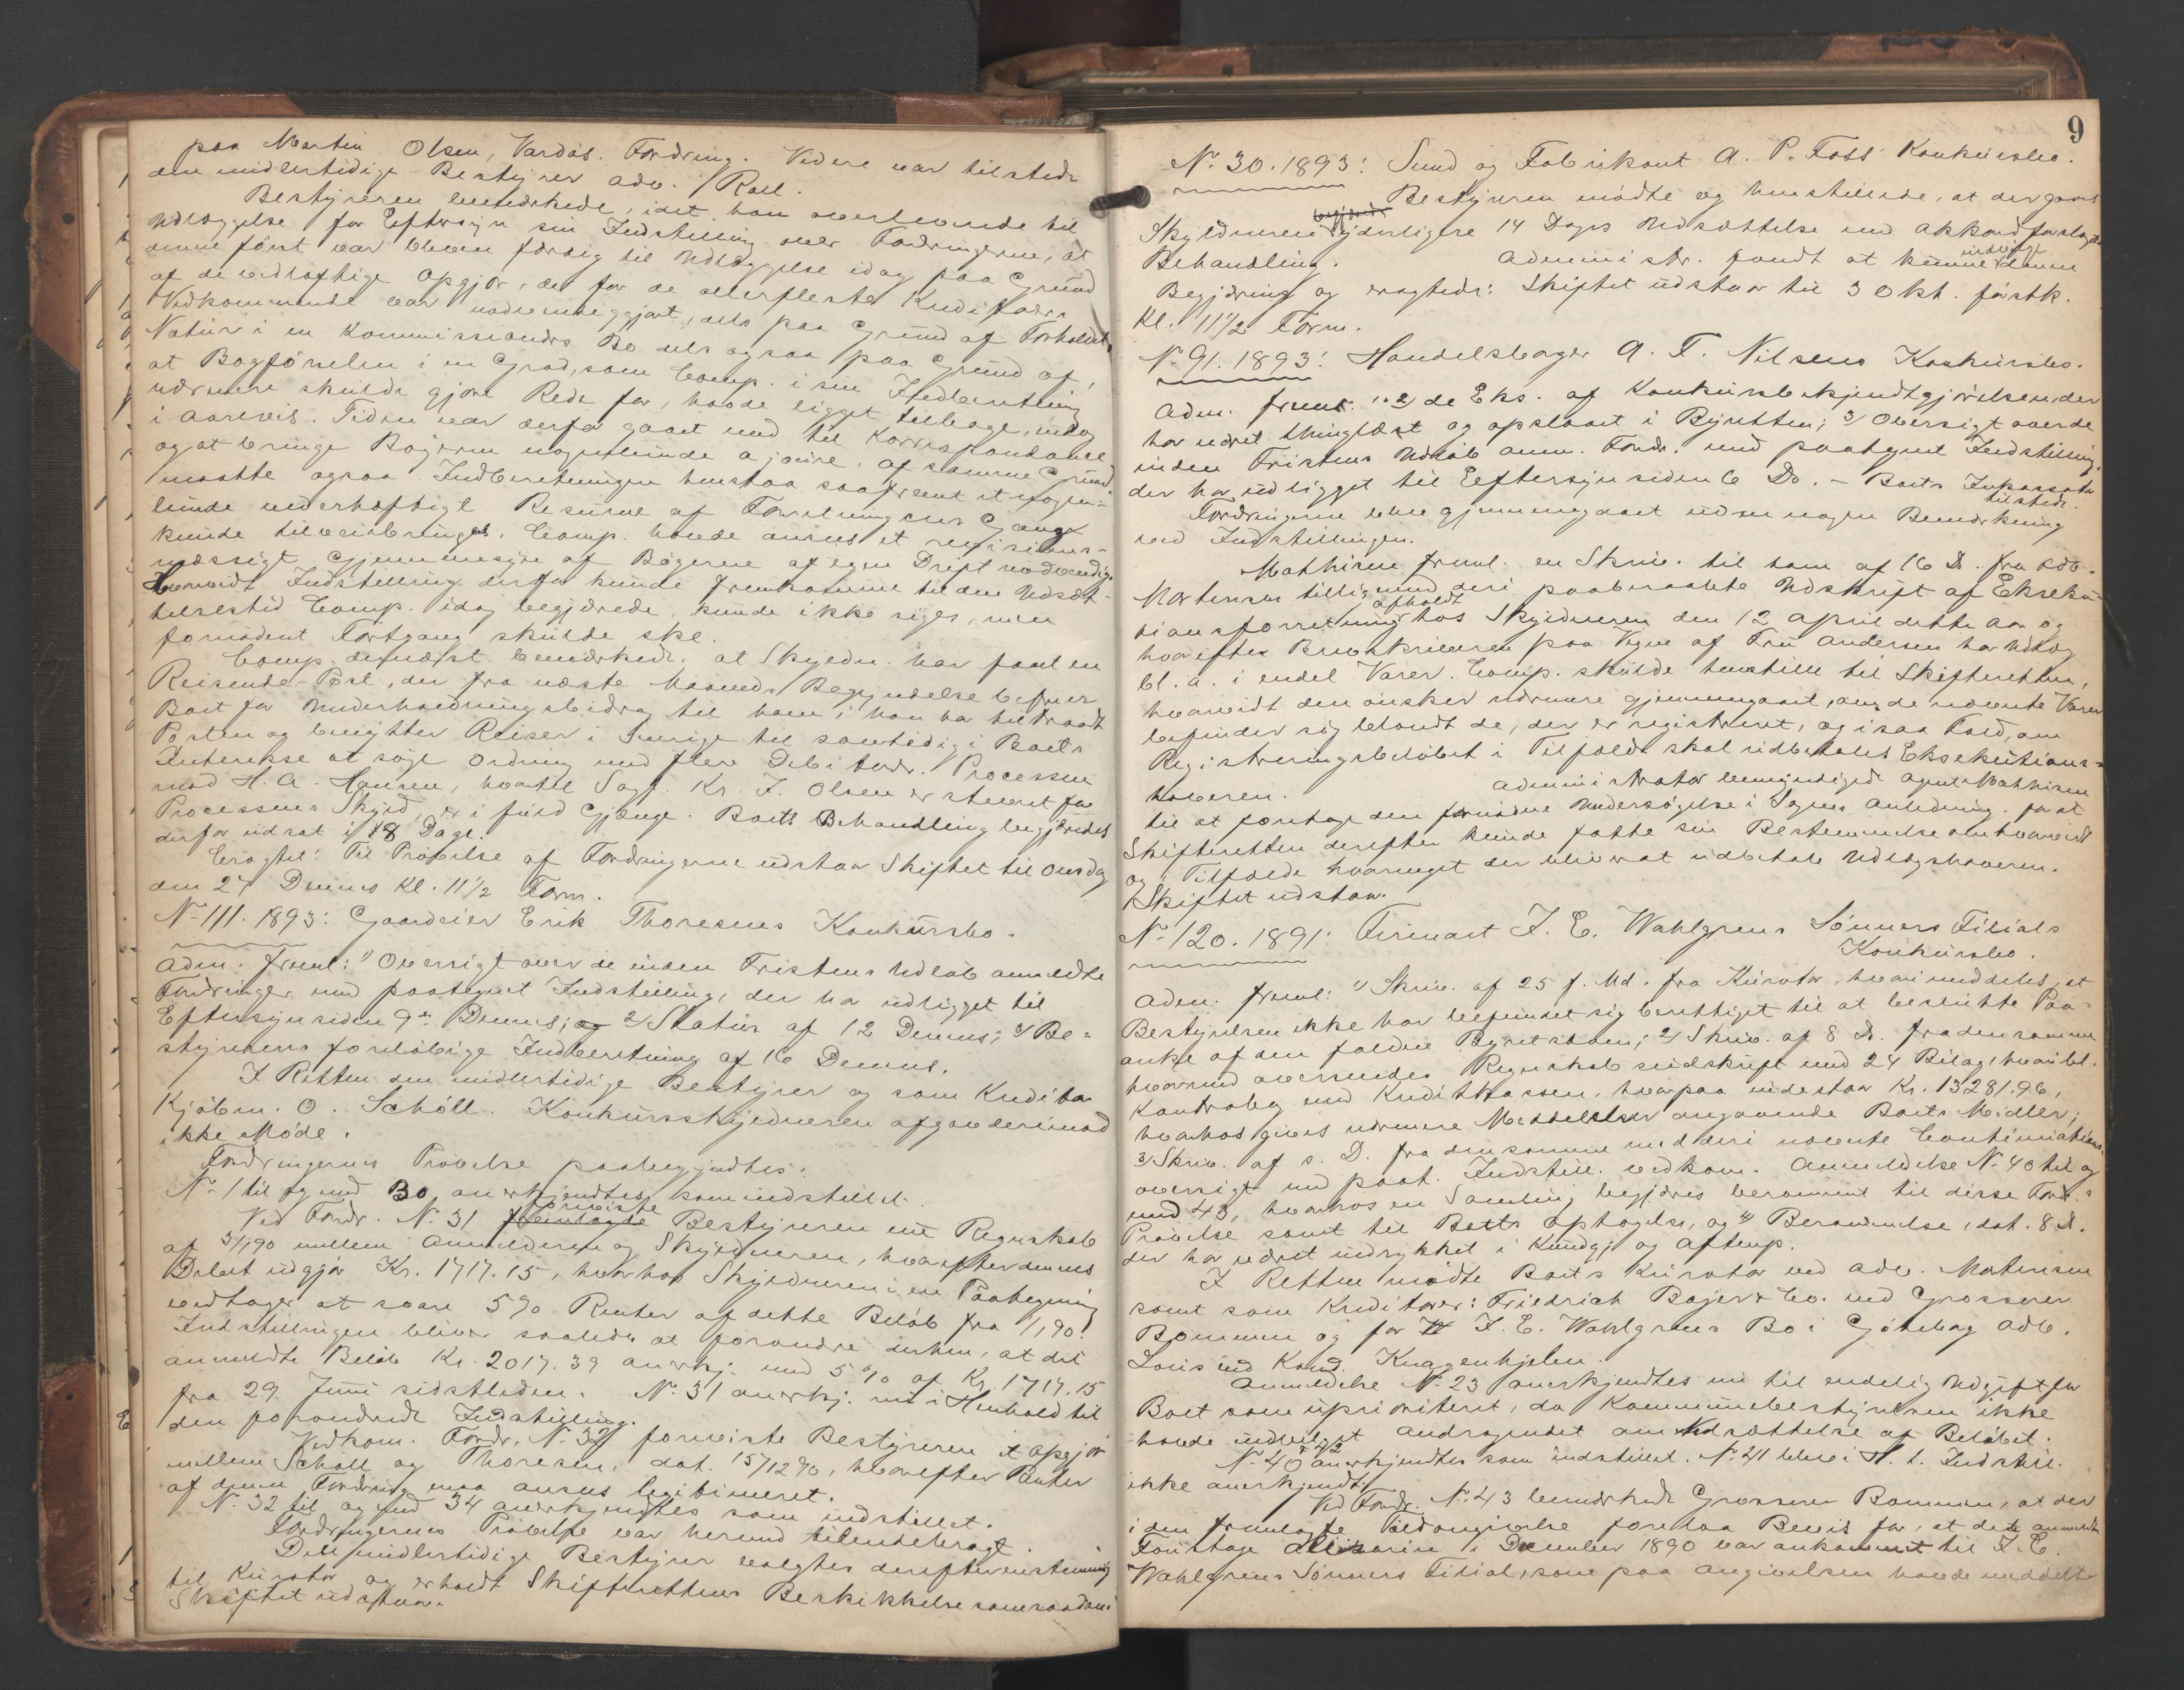 paa Martin Olsen, Vardøs. Fordring. Videre var tilstede
den midlertidige Bestyrer adv. Roll.
Bestyreren bemærkede, idet han overleverede til
Udlæggelse for Eftersyn sin Indstilling over Fordringerne, at
denne først var bleven færdig til Udlæggelse idag paa Grund
af de vidløftige Opgjør, der for de allerfleste Kreditorers
Vedkommende var nødvendiggjort, dels paa Grund af Forholdets
Natur i en Kommissionærs Bo dels ogsaa paa Grund af,
at Bogførselen i en Grad, som Comp. i sin Indberetning
nærmere skulde gjøre Rede for, havde ligget tilbage, endog
i aarevis. Tiden var derfor gaaet med til Korrespondance
og at bringe Bøgerne nogenlunde à jour. Af samme Grund
maatte ogsaa Indberetningen henstaa saafremt et nogen-
lunde vederhæftigt Resumé af Forretningens Gjænge
kunde tilveiebringes. Comp. havde anseet et revisions-
mæssigt Gjennemsyn af Bøgerne af egen Drift nødvendigt.
Hvorvidt Indstilling derfor kunde fremkomme til den Udsæt-
telsestid Comp. idag begjærede, kunde ikke siges, men
fornødent Fortgang skulde ske.
Comp. dernæst bemærkede, at Skyldn. har faaet en
Reisende-Post, der fra næste Maaneds Begyndelse befrier
Boet for Underholdningsbidrag til ham; han har tiltraadt
Posten og benytter Reiser i Sverige til samtidig i Boets
Interesse at søge Ordning med flere Debitorer. Processen
mod H. A. Hansen, hvortil Sagf. Kr. F. Olsen er stevnet for
Processens Skyld, er i fuld Gjænge. Boets Behandling begjæredes
derfor udsat i 8 Dage.
Eragtet: Til Prøvelse af Fordringerne udstaar Skiftet til Onsdag
den 27 Dennes Kl. 11 1/2 Form.
No 111. 1893: Gaardeier Erik Thoresens Konkursbo.
Adm. freml: 1) Oversigt over de inden Fristens Udløb anmeldte
Fordringer med paategnet Indstilling, der har udligget til
Eftersyn siden 9de Dennes; og 2) Status af 12 Dennes; 3) Be-
styrerens foreløbige Indberetning af 16 Dennes.
I Retten den midlertidige Bestyrer og som Kreditor
Kjøbm. O. Schøll. Konkursskyldneren afgav derimod
ikke Møde.
Fordringernes Prøvelse paabegyndtes.
No 1 til og med 30 anerkjendtes som indstillet.
Ved Fordr. No 31 fremlagde foreviste Bestyreren en Regnskab
af 31/1 90 mellem Anmelderen og Skyldneren, hvorefter dennes
Debet udgjør Kr. 1717.15, hvorhos Skyldneren i en Paategning
vedtager at svare 5 % Renter af dette Beløb fra 1/1 90.
Indstillingen bliver saaledes at forandre derhen, at det
anmeldte Beløb Kr. 2017.39 anerkj. med 5 % af Kr. 1717.15
fra 29 Juni sidstleden. No 31 anerkj. nu i Henhold til
den forandrede Indstilling.
Vedkom. Fordr. No 32 foreviste Bestyreren et Opgjør
mellem Schøll og Thoresen, dat. 15/12 90, hvorefter Renter
af denne Fordring maa ansees legitimeret.
No 32 til og med 34 anerkjendtes som indstillet.
Fordringernes Prøvelse var hermed tilendebragt.
Den midlertidige Bestyrer valgtes derefter enstemmig
til Kurator og erholdt Skifterettens Beskikkelse som saadan.
Skiftet udstaar.
9
No 30. 1893: Smed og Fabrikant A. P. Foss' Konkursbo.
Bestyreren mødte og henstillede, at der gaves
Skyldneren begjærede yderligere 14 Dages Udsættelse med Akkordforslagets
Behandling. Administr. fandt at kunne indvilge denne
Begjæring og eragtede: Skiftet udstaar til 3 Okt. førstk.
Kl. 11 1/2 Form.
No 91. 1893: Handelsborger A. F. Nilsens Konkursbo.
Adm. freml. 1 & 2) de Eks. af Konkursbekjendtgjørelsen, der
har været thinglæst og opslaaet i Byretten; 3) Oversigt over de
inden Fristens Udløb anm. Fordr. med paategnet Indstilling,
der har udligget til Eftersyn siden 6 Ds. - Boets Inkassator
tilstede.
Fordringerne blev gjennemgaaet uden nogen Bemærkning
ved Indstillingen.
Mathisen freml. en Skriv. til ham af 16 D. fra Adv.
Mortensen tilligemed deri paaberaabte Udskrift af Ekseku-
tionsforretning afholdt hos Skyldneren den 12 April dette Aar og
hvorefter Brevskriveren paa Vegne af Fru Andersen har Udlæg
bl. a. i endel Varer. Comp. skulde henstille til Skifteretten,
hvorvidt den ønsker nærmere gjennemgaaet, om de nævnte Varer
befinder sig blandt de, der er registreret, og i saa Fald, om
Registreringsbeløbet i Tilfælde skal udbetales Eksekutions-
haveren. Administrator bemyndiged Agent Mathisen
til at foretage den fornødne Undersøgelse i Sagens Anledning, for at
Skifteretten derefter kunde fatte sin Bestemmelse om hvorvidt
og i Tilfælde hvormeget der bliver at udbetale Udlægshaveren.
Skiftet udstaar.
No 120. 1891: Firmaet J. E. Wahlgrens Sønners Filials
Konkursbo.
Adm. freml: 1) Skriv. af 25 f. Md. fra Kurator, hvori meddeles, at
Bestyrelsen ikke har befundet sig berettiget til at beslutte Paa-
anke af den faldne Byretsdom; 2) Skriv. af 8 D. fra densamme
hvormed oversendes Regnskabsudskrift med 24 Bilag, hvoribl.
Kontrabog med Kreditkassen, hvorpaa indestaar Kr. 13281.96,
hvorhos gives nærmere Meddelelser angaaende Boets Midler;
3) Skriv. af s. D. fra densamme med deri nævnte Continuations-
oversigt med paat. Indstill. vedkom. Anmeldelse No 40 til og
med 43, hvorhos en Samling begjæres berammet til disse Fordr.s
Prøvelse samt til Boets Ophøgelse, og 4) Berammelse, dat. 8 D.
der har været indrykket i Kundgj. og Aftenp.
I Retten mødte Boets Kurator ved Adv. Mortensen
samt som Kreditorer: Friedrich Bayer & Co. ved Grosserer
Bommen og for J. E. Wahlgrens Bo i Gøteborg Adv.
Louis ved Kand. Knagenhjelm.
Anmeldelse No 23 anerkjendtes nu til endelig Udgift for
Boet som uprioriteret, da Kommunebestyrelsen ikke
havde indvilget Andragendet om Nedsættelse af Beløbet.
No 40 & 42 anerkjendtes som indstillet. No 41 blev i H. t. Indstill.
ikke anerkjendt.
Ved Fordr. No 43 bemærkede Grosserer Bommen, at der
i den fremlagte Toldangivelse forelaa Bevis for, at det anmeldte
Fustage Alizarin i December 1890 var ankommet til J. E.
Wahlgrens Sønners Filial, som paa Angivelsen havde meddelt